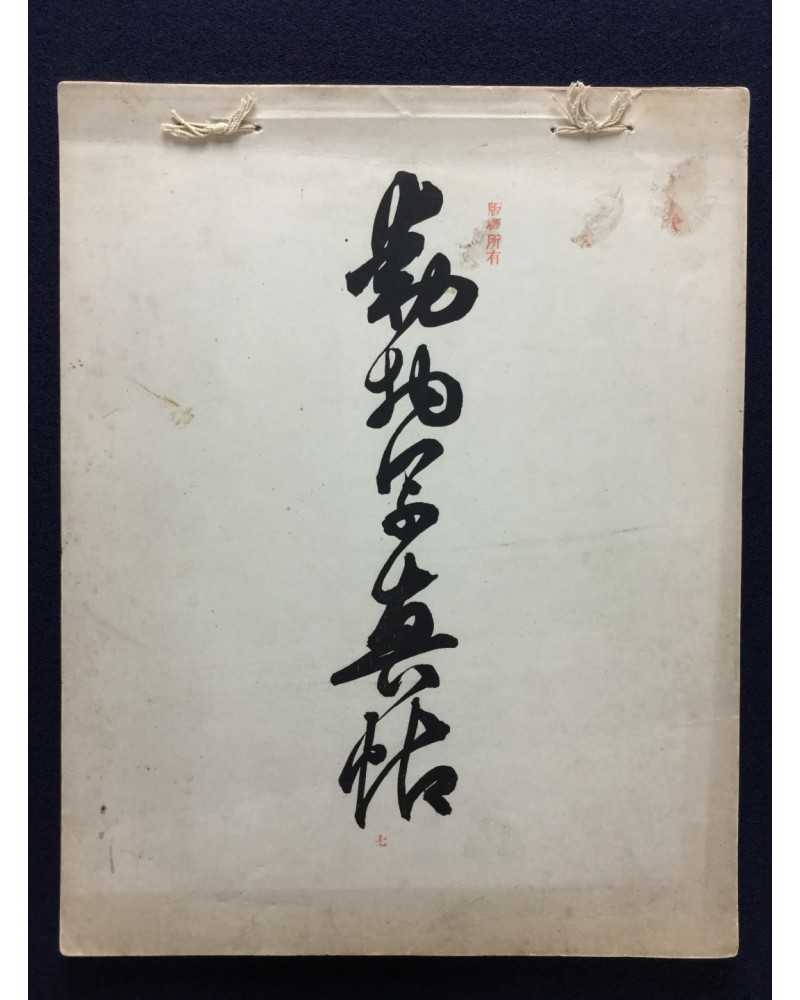 版權所有
動物写真帖
七